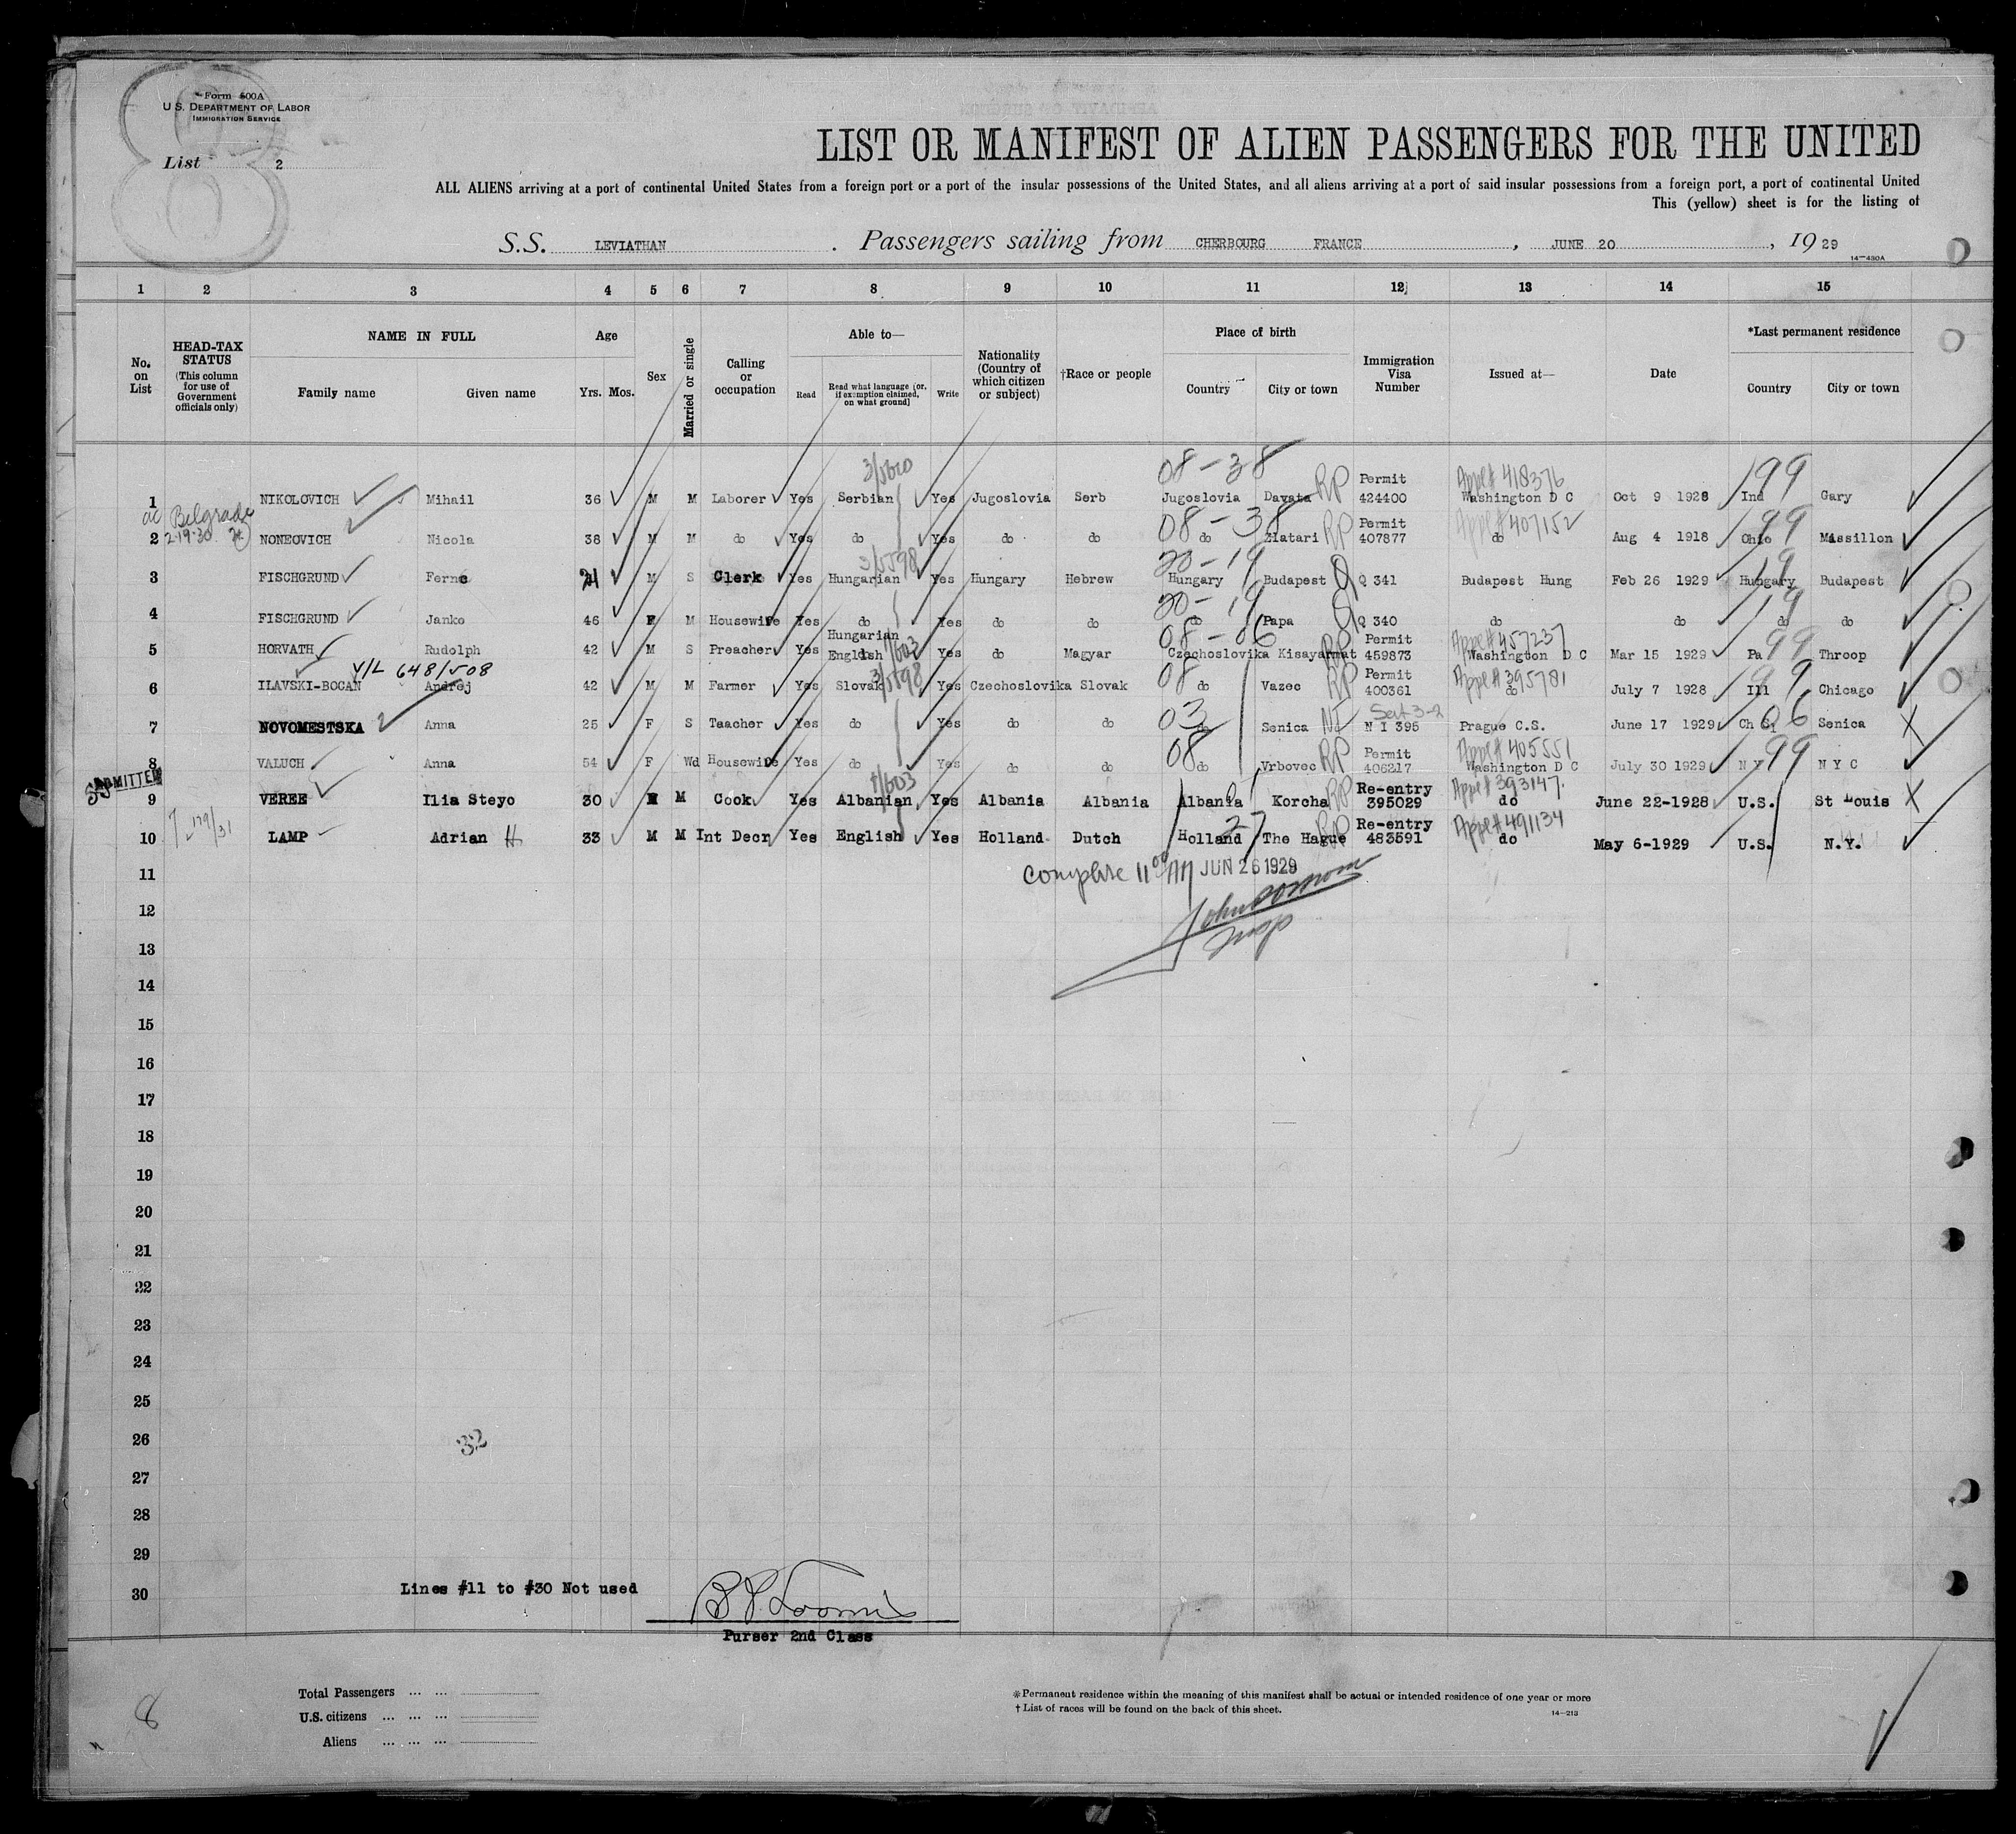 Form 500A
U.S. DEPARTMENT OF LABOR
IMMIGRATION SERVICE
List 2
LIST OR MANIFEST OF ALIEN PASSENGERS FOR THE UNITED
ALL ALIENS arriving at a port of continental United States from a foreign port or a port of the insular possessions of the United States, and all aliens arriving at a port of said insular possessions from a foreign port, a port of continental United
This (yellow) sheet is for the listing of
S.S. LEVIATHAN . Passengers sailing from CHERBOURG FRANCE , JUNE 20 , 1929
14—430A
1 2 3 4 5 6 7 8 9 10 11 12 13 14 15
No. on List
HEAD-TAX STATUS (This column for use of Government officials only)
NAME IN FULL
Family name Given name
Age
Yrs. Mos.
Sex
Married or single
Calling or occupation
Able to—
Read Read what language [or, if exemption claimed, on what ground] Write
Nationality (Country of which citizen or subject)
†Race or people
Place of birth
Country City or town
Immigration Visa Number
Issued at—
Date
*Last permanent residence
Country City or town
3/5620
08-38 199
1 NIKOLOVICH Mihail 36 M M Laborer Yes Serbian Yes Jugoslovia Serb Jugoslovia Davata RP Permit 424400 Appl# 418376 Washington D C Oct 9 1928 Ind Gary
Belgrade
2-19-30
08-38 99
2 NONEOVICH Nicola 38 M M do Yes do Yes do do do Zlatari RP Permit 407877 Appl# 407152 do Aug 4 1918 Ohio Massillon
3/5598
20-19 19
3 FISCHGRUND Ferno 21 M S Clerk Yes Hungarian Yes Hungary Hebrew Hungary Budapest Q Q 341 Budapest Hung Feb 26 1929 Hungary Budapest
20-19 19
4 FISCHGRUND Janko 46 F M Housewife Yes do Yes do do do Papa Q Q 340 do do do do
08-06 99
5 HORVATH Rudolph 42 M S Preacher Yes Hungarian English Yes do Magyar Czechoslovika Kisayarmat RP Permit 459873 Appl# 457237 Washington D C Mar 15 1929 Pa Throop
V/L 648/508
3/5598
08 99
6 ILAVSKI-BOCAN Andrej 42 M M Farmer Yes Slovak Yes Czechoslovika Slovak do Vazec RP Permit 400361 Appl# 395781 do July 7 1928 Ill Chicago
03 06
7 NOVOMESTSKA Anna 25 F S Taacher Yes do Yes do do do Senica N I 395 Prague C.S. June 17 1929 Ch Sl Senica
08 99
8 VALUCH Anna 54 F Wd Housewife Yes do Yes do do do Vrbovec RP Permit 406217 Appl# 405551 Washington D C July 30 1929 N Y N Y C
ADMITTED
9 VEREE Ilia Steyo 30 M M Cook Yes Albanian Yes Albania Albania Albania Korcha RP Re-entry 395029 Appl# 393147 do June 22-1928 U.S. St Louis
27
10 LAMP Adrian H 33 M M Int Decr Yes English Yes Holland Dutch Holland The Hague RP Re-entry 483591 Appl# 491134 do May 6-1929 U.S. N.Y.
11 Complete 11 00 AM JUN 26 1929
12
13 Insp
14
15
16
17
18
19
20
21
22
23
24
25
26 32
27
28
29
30 Lines #11 to #30 Not used
Purser 2nd Class
8
Total Passengers ... ...
U.S. citizens ... ... ...
Aliens ... ... ...
*Permanent residence within the meaning of this manifest shall be actual or intended residence of one year or more
†List of races will be found on the back of this sheet.
14—213